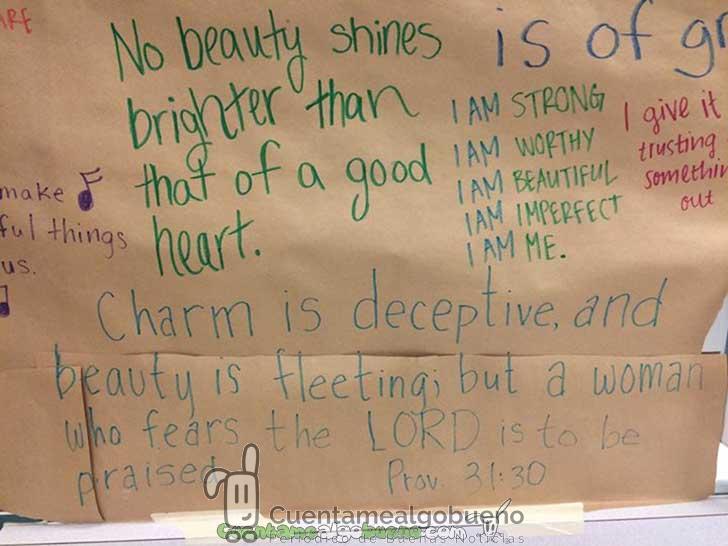 ARE
No beauty shines
brighter than
that of a good
heart.
is of gr
I AM STRONG
I AM WORTHY
I AM BEAUTIFUL
I AM IMPERFECT
I AM ME.
I give it
trusting
somethin
out
make
ful things
us.
Charm is deceptive, and
beauty is fleeting; but a woman
who fears the LORD is to be
praised
Prov. 31:30
Cuentamealgobueno
Cuentamealgobueno.com
Periodico de Buenas Noticias